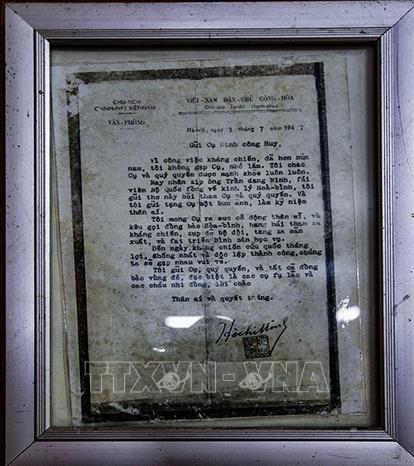 CHỦ-TỊCH
CHÍNH-PHỦ VIỆT-NAM
VĂN-PHÒNG
VIỆT-NAM DÂN-CHỦ CỘNG-HÒA
Độc-lập Tự-do Hạnh-phúc
Hà-Nội, ngày 1 tháng 7 năm 1947
Gửi Cụ Đinh công Huy,
Vì công việc kháng chiến, đã hơn nửa
nam, tôi không gặp Cụ, nhớ lắm. Tôi chắc
Cụ và quý quyến được mạnh khỏe luôn luôn.
Nay nhân dịp ông Trần đang Ninh, fái
viên Bộ Quốc fòng về kinh lý Hoà-bình, tôi
gửi thơ này hỏi thăm Cụ và quý quyến. Và
tôi gửi tặng Cụ một bức ảnh, làm kỷ niệm
thân ái.
Tôi mong Cụ ra sức cổ động thân sĩ, và
kêu gọi đồng bào Hòa-bình, hăng hái tham za
kháng chiến, zúp đỡ bộ đội, tăng za sản
xuất, và fát triển Bình zân học vụ.
Đến ngày kháng chiến cứu quốc thắng
lợi, thống nhất và độc lập thành công, chúng
ta sẽ gặp nhau vui vẻ.
Tôi gửi Cụ, quý quyến, và tất cả đồng
bào vùng đó, đặc biệt là các cụ fụ lão và
các cháu nhi đồng, lời chào
Thân ái và quyết thắng.
Hồ Chí Minh
TTXVN - VNA